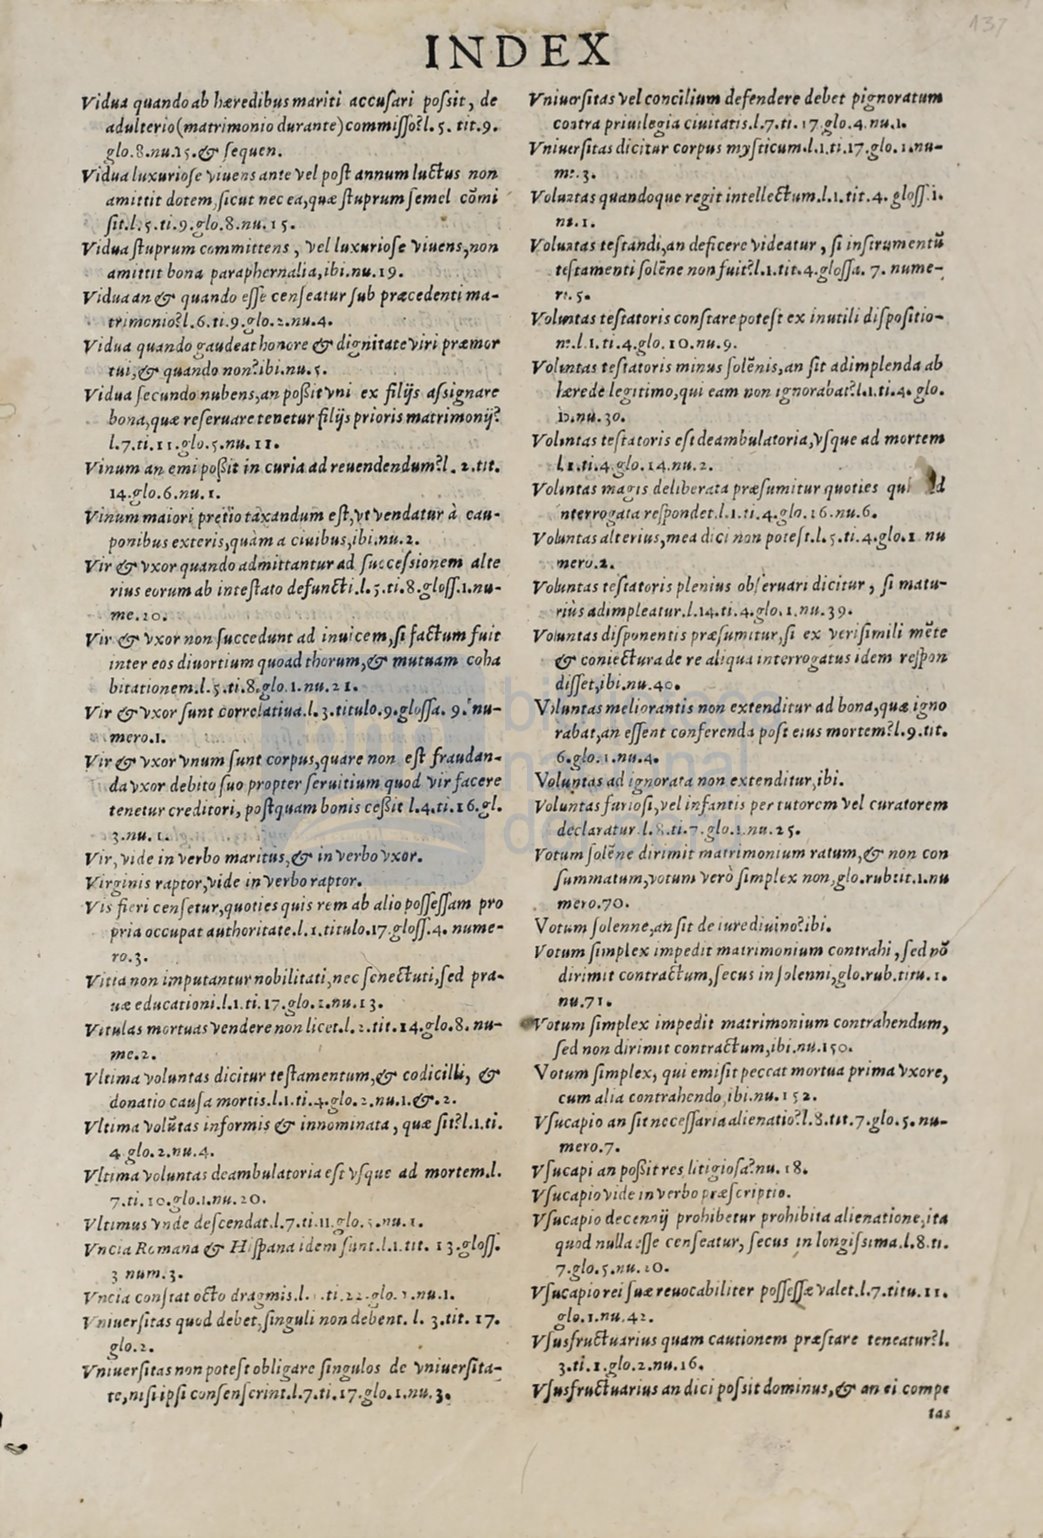 137
INDEX
Vidua quando ab hæredibus mariti accusari possit, de
adulterio (matrimonio durante) commisso? l. 5. tit. 9.
glo. 8. nu. 15. & sequen.
Vidua luxuriose viuens ante vel post annum luctus non
amittit dotem, sicut nec ea, quæ stuprum semel cōmi
sit. l. 5. ti. 9. glo. 8. nu. 15.
Vidua stuprum committens, vel luxuriose viuens, non
amittit bona paraphernalia, ibi. nu. 19.
Vidua an & quando esse censeatur sub præcedenti ma-
trimonio? l. 6. ti. 9. glo. 2. nu. 4.
Vidua quando gaudeat honore & dignitate viri præmor
tui, & quando non? ibi. nu. 5.
Vidua secundo nubens, an possit vni ex filijs assignare
bona, quæ reseruare tenetur filijs prioris matrimonij?
l. 7. ti. 11. glo. 5. nu. 11.
Vinum an emi possit in curia ad reuendendum? l. 2. tit.
14. glo. 6. nu. 1.
Vinum maiori pretio taxandum est, vt vendatur à cau-
ponibus exteris, quàm a ciuibus, ibi. nu. 2.
Vir & vxor quando admittantur ad successionem alte
rius eorum ab intestato defuncti. l. 5. ti. 8. gloss. 1. nu-
me. 20.
Vir & vxor non succedunt ad inuicem, si factum fuit
inter eos diuortium quoad thorum, & mutuam coha
bitationem. l. 5. ti. 8. glo. 1. nu. 21.
Vir & vxor sunt correlatiua. l. 3. titulo. 9. glossa. 9. nu-
mero. 1.
Vir & vxor vnum sunt corpus, quare non est fraudan-
da vxor debito suo propter seruitium quod vir facere
tenetur creditori, postquam bonis cessit l. 4. ti. 16. gl.
3. nu. 1.
Vir, vide in verbo maritus, & in verbo vxor.
Virginis raptor, vide in verbo raptor.
Vis fieri censetur, quoties quis rem ab alio possessam pro
pria occupat authoritate. l. 1. titulo. 17. gloss. 4. nume-
ro. 3.
Vitia non imputantur nobilitati, nec senectuti, sed pra-
uæ educationi. l. 1. ti. 17. glo. 1. nu. 13.
Vitulas mortuas vendere non licet. l. 2. tit. 14. glo. 8. nu-
me. 2.
Vltima voluntas dicitur testamentum, & codicilli, &
donatio causa mortis. l. 1. ti. 4. glo. 2. nu. 1. &. 2.
Vltima volūtas informis & innominata, quæ sit? l. 1. ti.
4. glo. 2. nu. 4.
Vltima voluntas deambulatoria est vsque ad mortem. l.
7. ti. 10. glo. 1. nu. 20.
Vltimus vnde descendat. l. 7. ti. 11. glo. 5. nu. 1.
Vncia Romana & Hispana idem sunt. l. 1. tit. 13. gloss.
3 num. 3.
Vncia constat octo dragmis. l. ti. 22. glo. nu. 1.
Vniuersitas quod debet, singuli non debent. l. 3. tit. 17.
glo. 2.
Vniuersitas non potest obligare singulos de vniuersita-
te, nisi ipsi consenserint. l. 7. ti. 17. glo. 1. nu. 3.
Vniuersitas vel concilium defendere debet pignoratum
contra priuilegia ciuitatis. l. 7. ti. 17. glo. 4. nu. 1.
Vniuersitas dicitur corpus mysticum. l. 1. ti. 17. glo. 1. nu-
me. 3.
Voluntas quandoque regit intellectum. l. 1. tit. 4. gloss. 1.
nu. 1.
Voluntas testandi, an deficere videatur, si instrumentū
testamenti solēne non fuit? l. 1. tit. 4. glossa. 7. nume-
ro. 5.
Voluntas testatoris constare potest ex inutili dispositio-
ne. l. 1. ti. 4. glo. 10. nu. 9.
Voluntas testatoris minus solēnis, an sit adimplenda ab
hærede legitimo, qui eam non ignorabat? l. 1. ti. 4. glo.
12. nu. 30.
Voluntas testatoris est deambulatoria, vsque ad mortem
l. 1. ti. 4. glo. 14. nu. 2.
Voluntas magis deliberata præsumitur quoties qui ad
nterrogata respondet. l. 1. ti. 4. glo. 16. nu. 6.
Voluntas alterius, mea dici non potest. l. 5. ti. 4. glo. 1 nu
mero. 2.
Voluntas testatoris plenius obseruari dicitur, si matu-
rius adimpleatur. l. 14. ti. 4. glo. 1. nu. 39.
Voluntas disponentis præsumitur, si ex verisimili mēte
& coniectura de re aliqua interrogatus idem respon
disset, ibi. nu. 40.
Voluntas meliorantis non extenditur ad bona, quæ igno
rabat, an essent conferenda post eius mortem? l. 9. tit.
6. glo. 1. nu. 4.
Voluntas ad ignorata non extenditur, ibi.
Voluntas furiosi, vel infantis per tutorem vel curatorem
declaratur. l. 8. ti. 7. glo. 1. nu. 25.
Votum solēne dirimit matrimonium ratum, & non con
summatum, votum verò simplex non, glo. rub. tit. 1. nu
mero. 70.
Votum solenne, an sit de iure diuino? ibi.
Votum simplex impedit matrimonium contrahi, sed nō
dirimit contractum, secus in solenni, glo. rub. titu. 1.
nu. 71.
Votum simplex impedit matrimonium contrahendum,
sed non dirimit contractum, ibi. nu. 150.
Votum simplex, qui emisit peccat mortua prima vxore,
cum alia contrahendo, ibi. nu. 152.
Vsucapio an sit necessaria alienatio? l. 8. tit. 7. glo. 5. nu-
mero. 7.
Vsucapi an possit res litigiosa? nu. 18.
Vsucapio vide in verbo præscriptio.
Vsucapio decennij prohibetur prohibita alienatione, ita
quod nulla esse censeatur, secus in longissima. l. 8. ti.
7. glo. 5. nu. 20.
Vsucapio rei suæ reuocabiliter possessæ valet. l. 7. titu. 11.
glo. 1. nu. 42.
Vsusfructuarius quam cautionem præstare teneatur? l.
3. ti. 1. glo. 2. nu. 16.
Vsusfructuarius an dici possit dominus, & an ei compe
tas